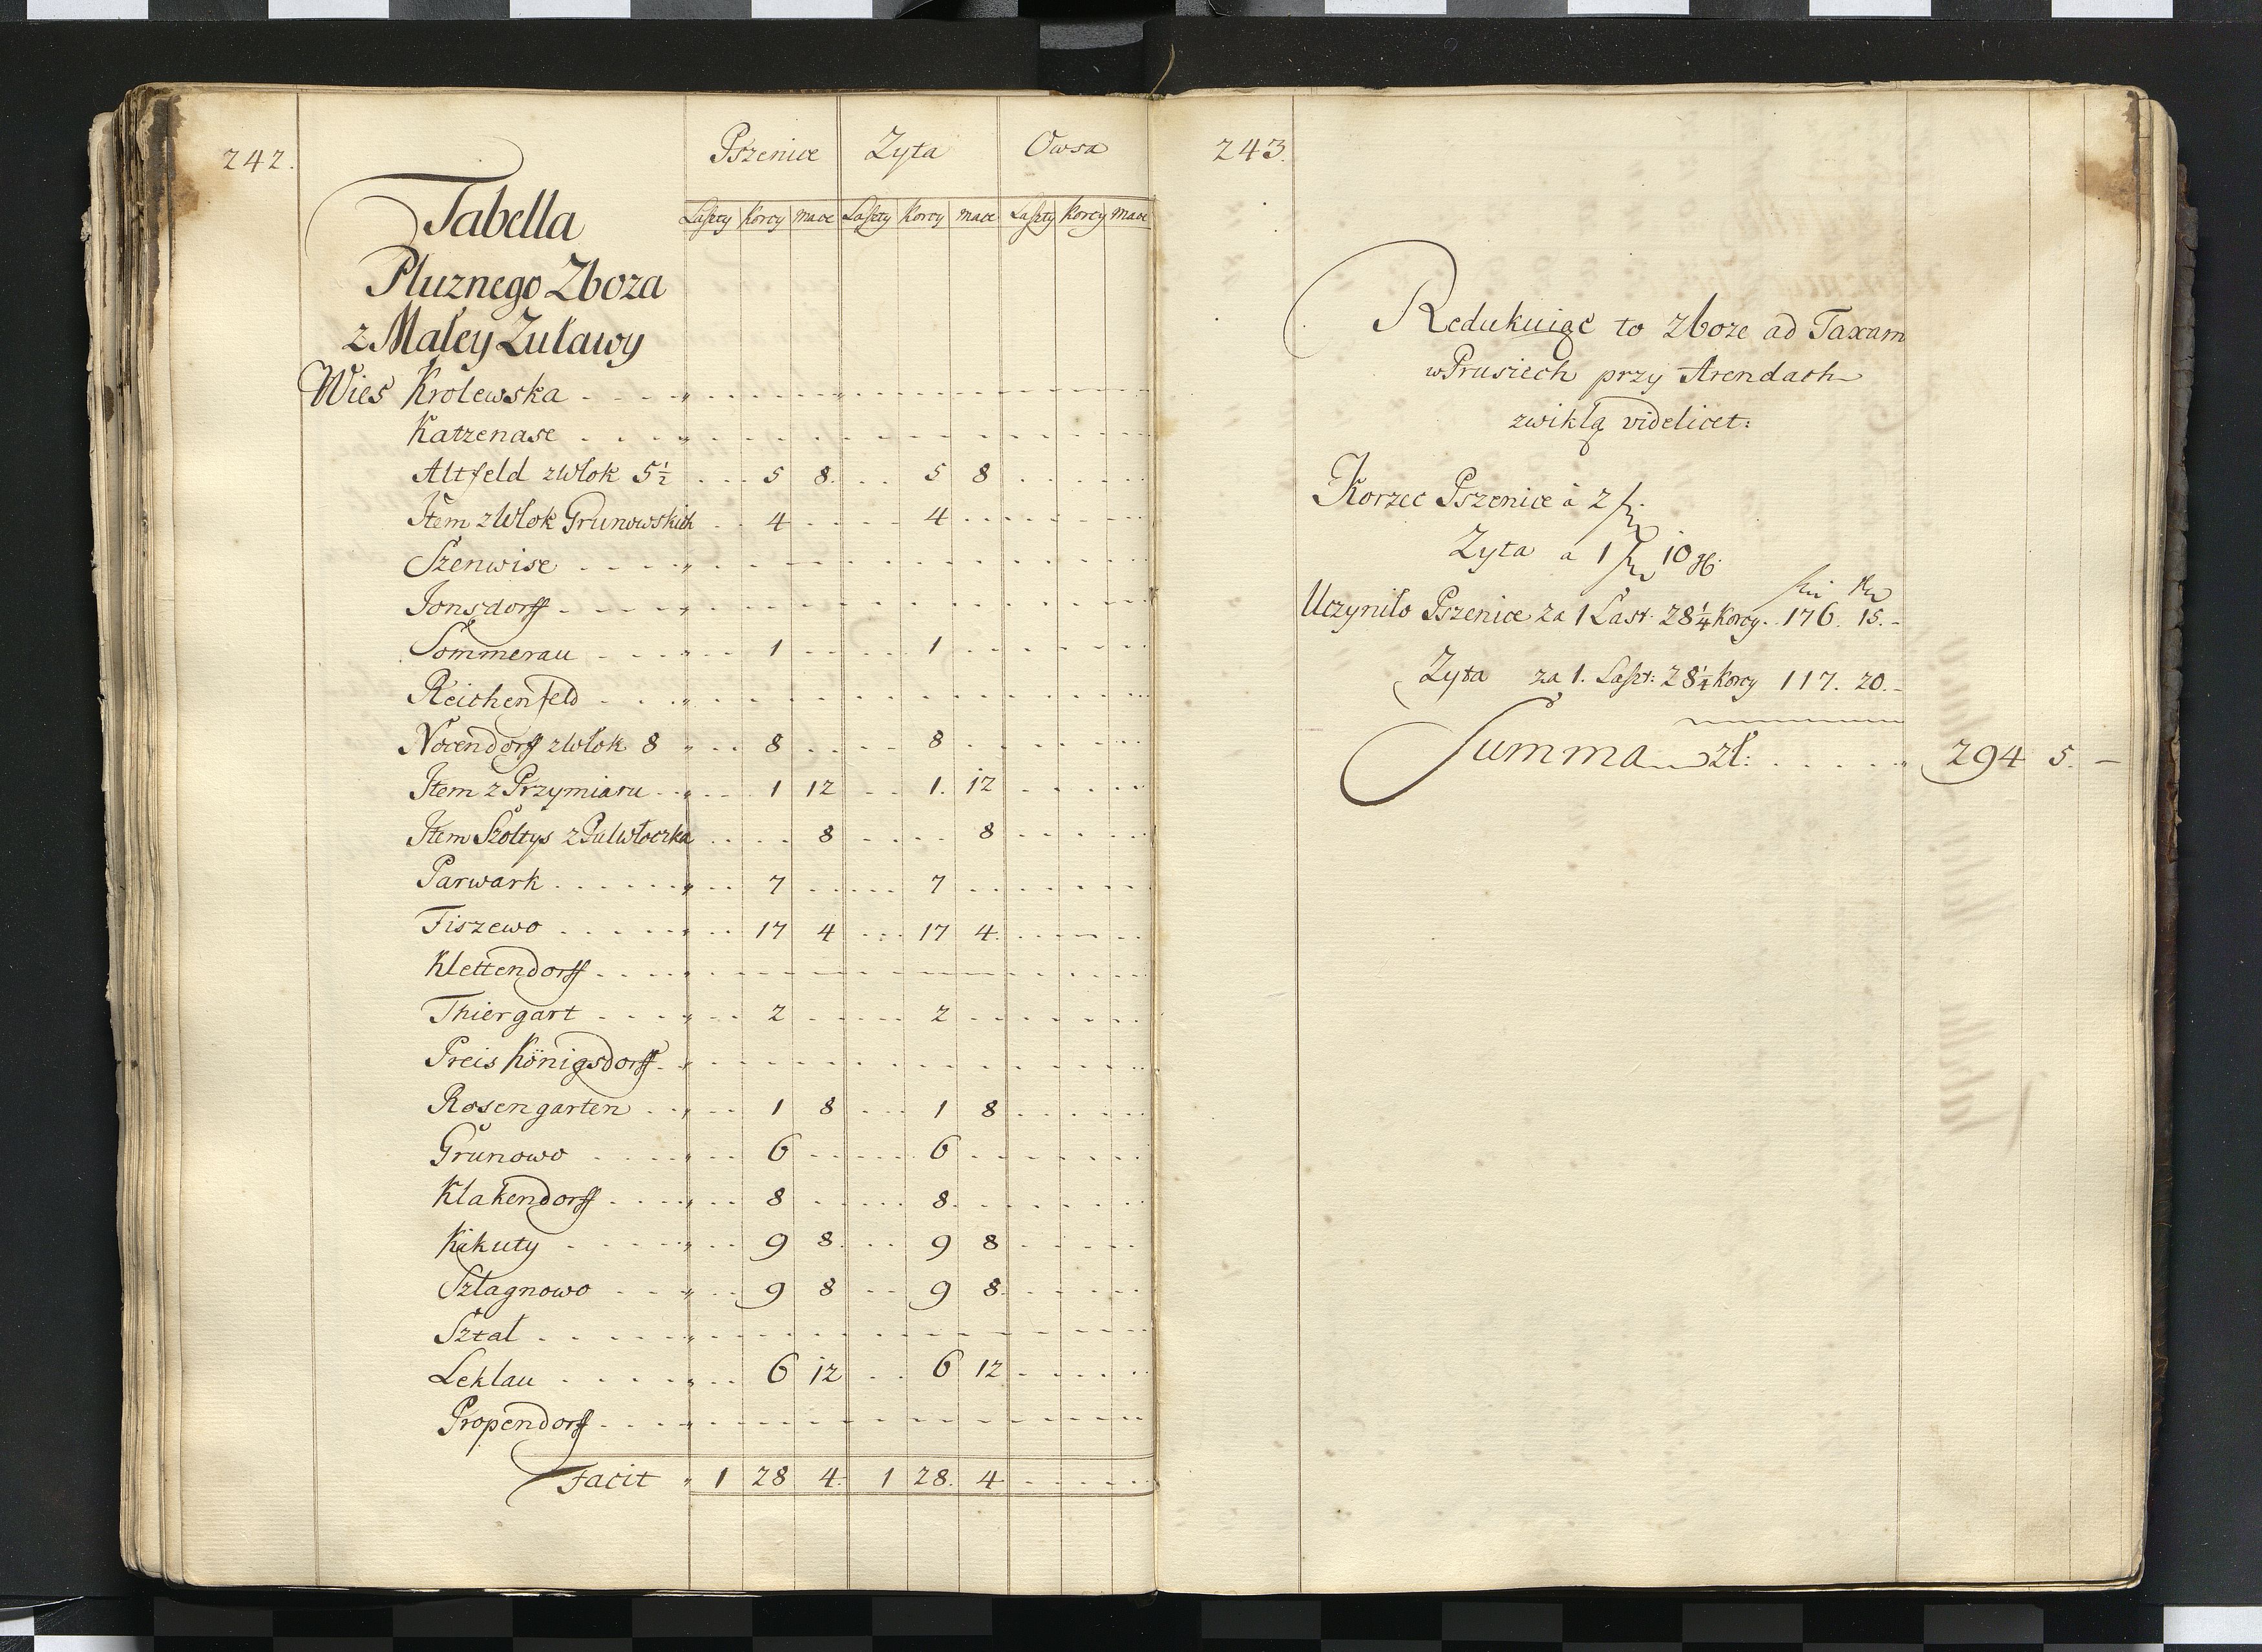 242.
Pszenice Zyta Owsa
Laszty Korcy mace Laszty Korcy mace Laszty Korcy mace
Tabella
Pluznego Zboza
z Małey Zuławy
Wies Krolewska
Katzenase
Altfeld z Włok 5½ 5 8. 5 8
Item z Włok Grunowskich 4 4
Szenwise
Jonsdorff
Sommerau 1 1
Reichenfeld
Nocendorff z Włok 8 8 8
Item z Przymiaru 1 12 1. 12
Item Szołtys z Pulwłoczka 8 8
Parwark 7 7
Fiszewo 17 4 17 4.
Klettendorff
Thiergart 2 2
Preis Königsdorff
Rosengarten 1 8 1 8
Grunowo 6 6
Klakendorff 8 8.
Kikuty 9 8. 9 8
Sztagnowo 9 8 9 8.
Sztal
Leklau 6 12 6 12
Propendorff
Facit 1 28 4. 1 28. 4
243.
Redukuiąc to zboze ad Taxam
w Prusiech przy Arendach
zwikłą videlicet:
Korzec Pszenice à 2
Zyta a 1 10 gr.
Uczyniło Pszenice za 1 Last: 28¼ Korcy. 176. 15.-
Zyta za 1. Laszt: 28¼ Korcy 117. 20.-
Summa zł: 294 5. —